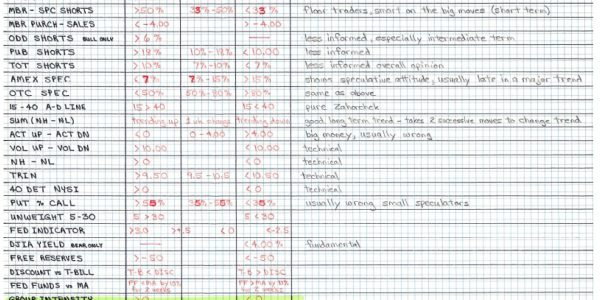 MBR - SPC SHORTS >50% 35%-50% <35% floor traders, smart on the big moves (short term)
MBR PURCH - SALES <-4.00 >-4.00
ODD SHORTS BULL ONLY >6% — less informed, especially intermediate term
PUB SHORTS >12% 10%-12% <10.00 less informed
TOT SHORTS >10% 7%-10% <7% less informed overall opinion
AMEX SPEC <7% 7%-15% >15% shows speculative attitude, usually late in a major trend
OTC SPEC <50% 50%-80% >80% same as above
15-40 A-D LINE 15>40 15<40 pure Zahorchek
SUM (NH-NL) trending up 1 wk change trending down good long term trend - takes 2 successive moves to change trend
ACT UP - ACT DN <0 0-4.00 >4.00 big money, usually wrong
VOL UP - VOL DN >10.00 <10.00 technical
NH - NL >0 <0 technical
TRIN >9.50 9.5-10.5 <10.50 technical
40 DET NYSI >0 <0 technical
PUT % CALL >55% 35%-55% <35% usually wrong small speculators
UNWEIGHT 5-30 5>30 5<30
FED INDICATOR >3.0 >1.5 <0 <-2.5
DJIA YIELD BEAR ONLY — <4.00% fundamental
FREE RESERVES >-50 <-50
DISCOUNT vs T-BILL T-B < DISC T-B > DISC
FED FUNDS vs MA FF<MA by 10% for 2 weeks FF>MA by 10% for 2 weeks
GROUP INTENSITY >0 <0